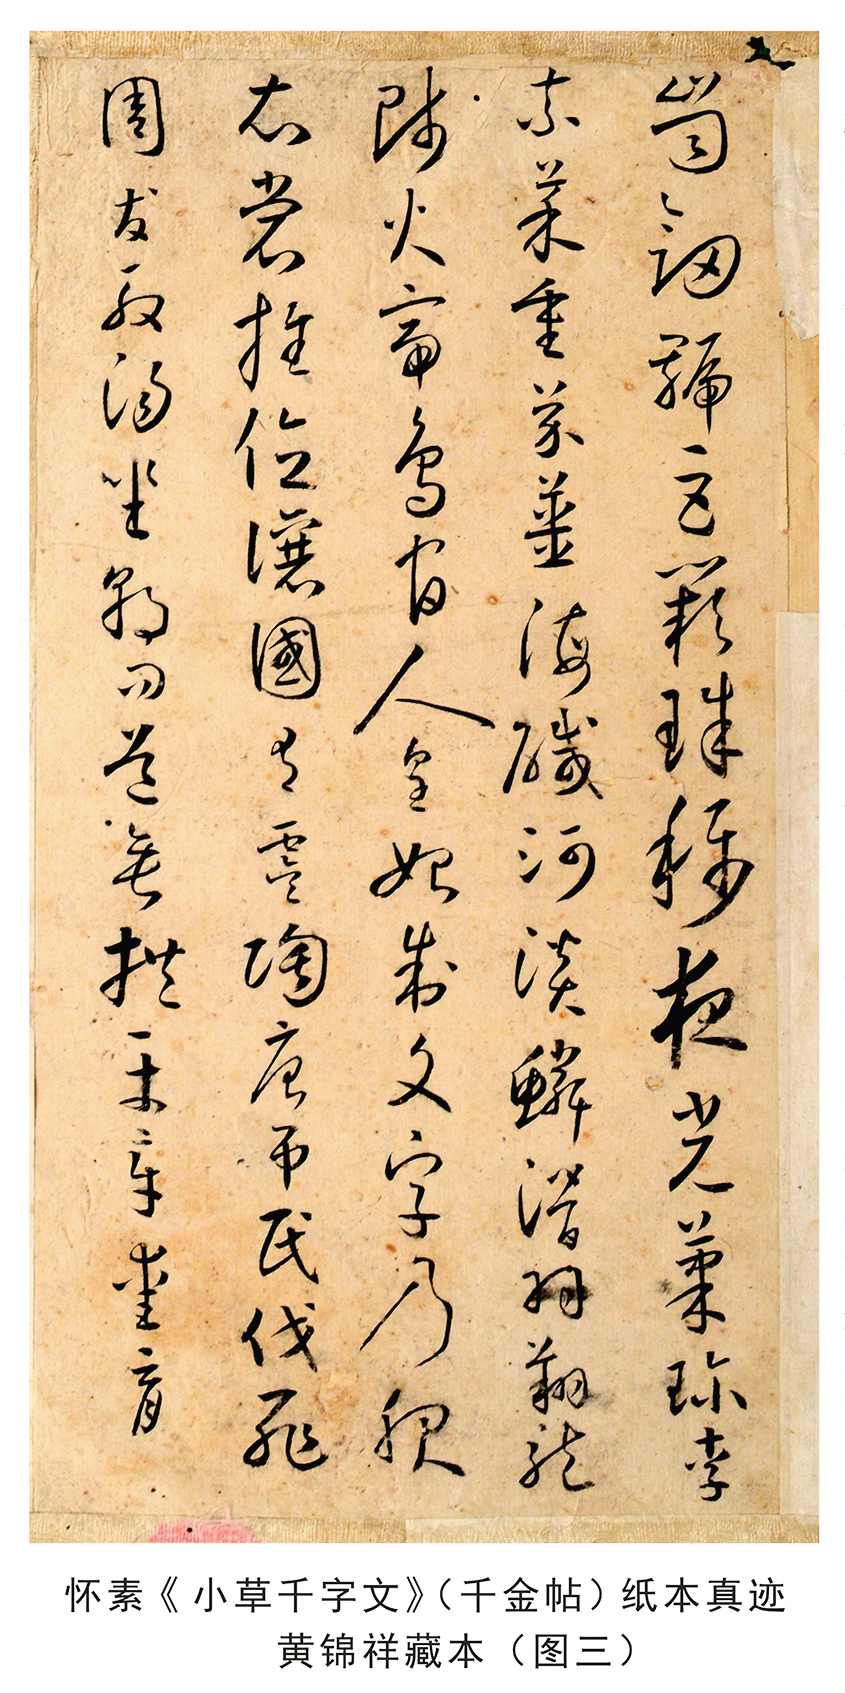 崗劍號巨闕珠稱夜光菓珍李
柰菜重芥薑海鹹河淡鱗潛羽翔龍
師火帝鳥官人皇始制文字乃服
衣裳推位讓國有虞陶唐弔民伐罪
周發殷湯坐朝問道垂拱平章愛育
怀素《小草千字文》（千金帖）纸本真迹
黄锦祥藏本（图三）